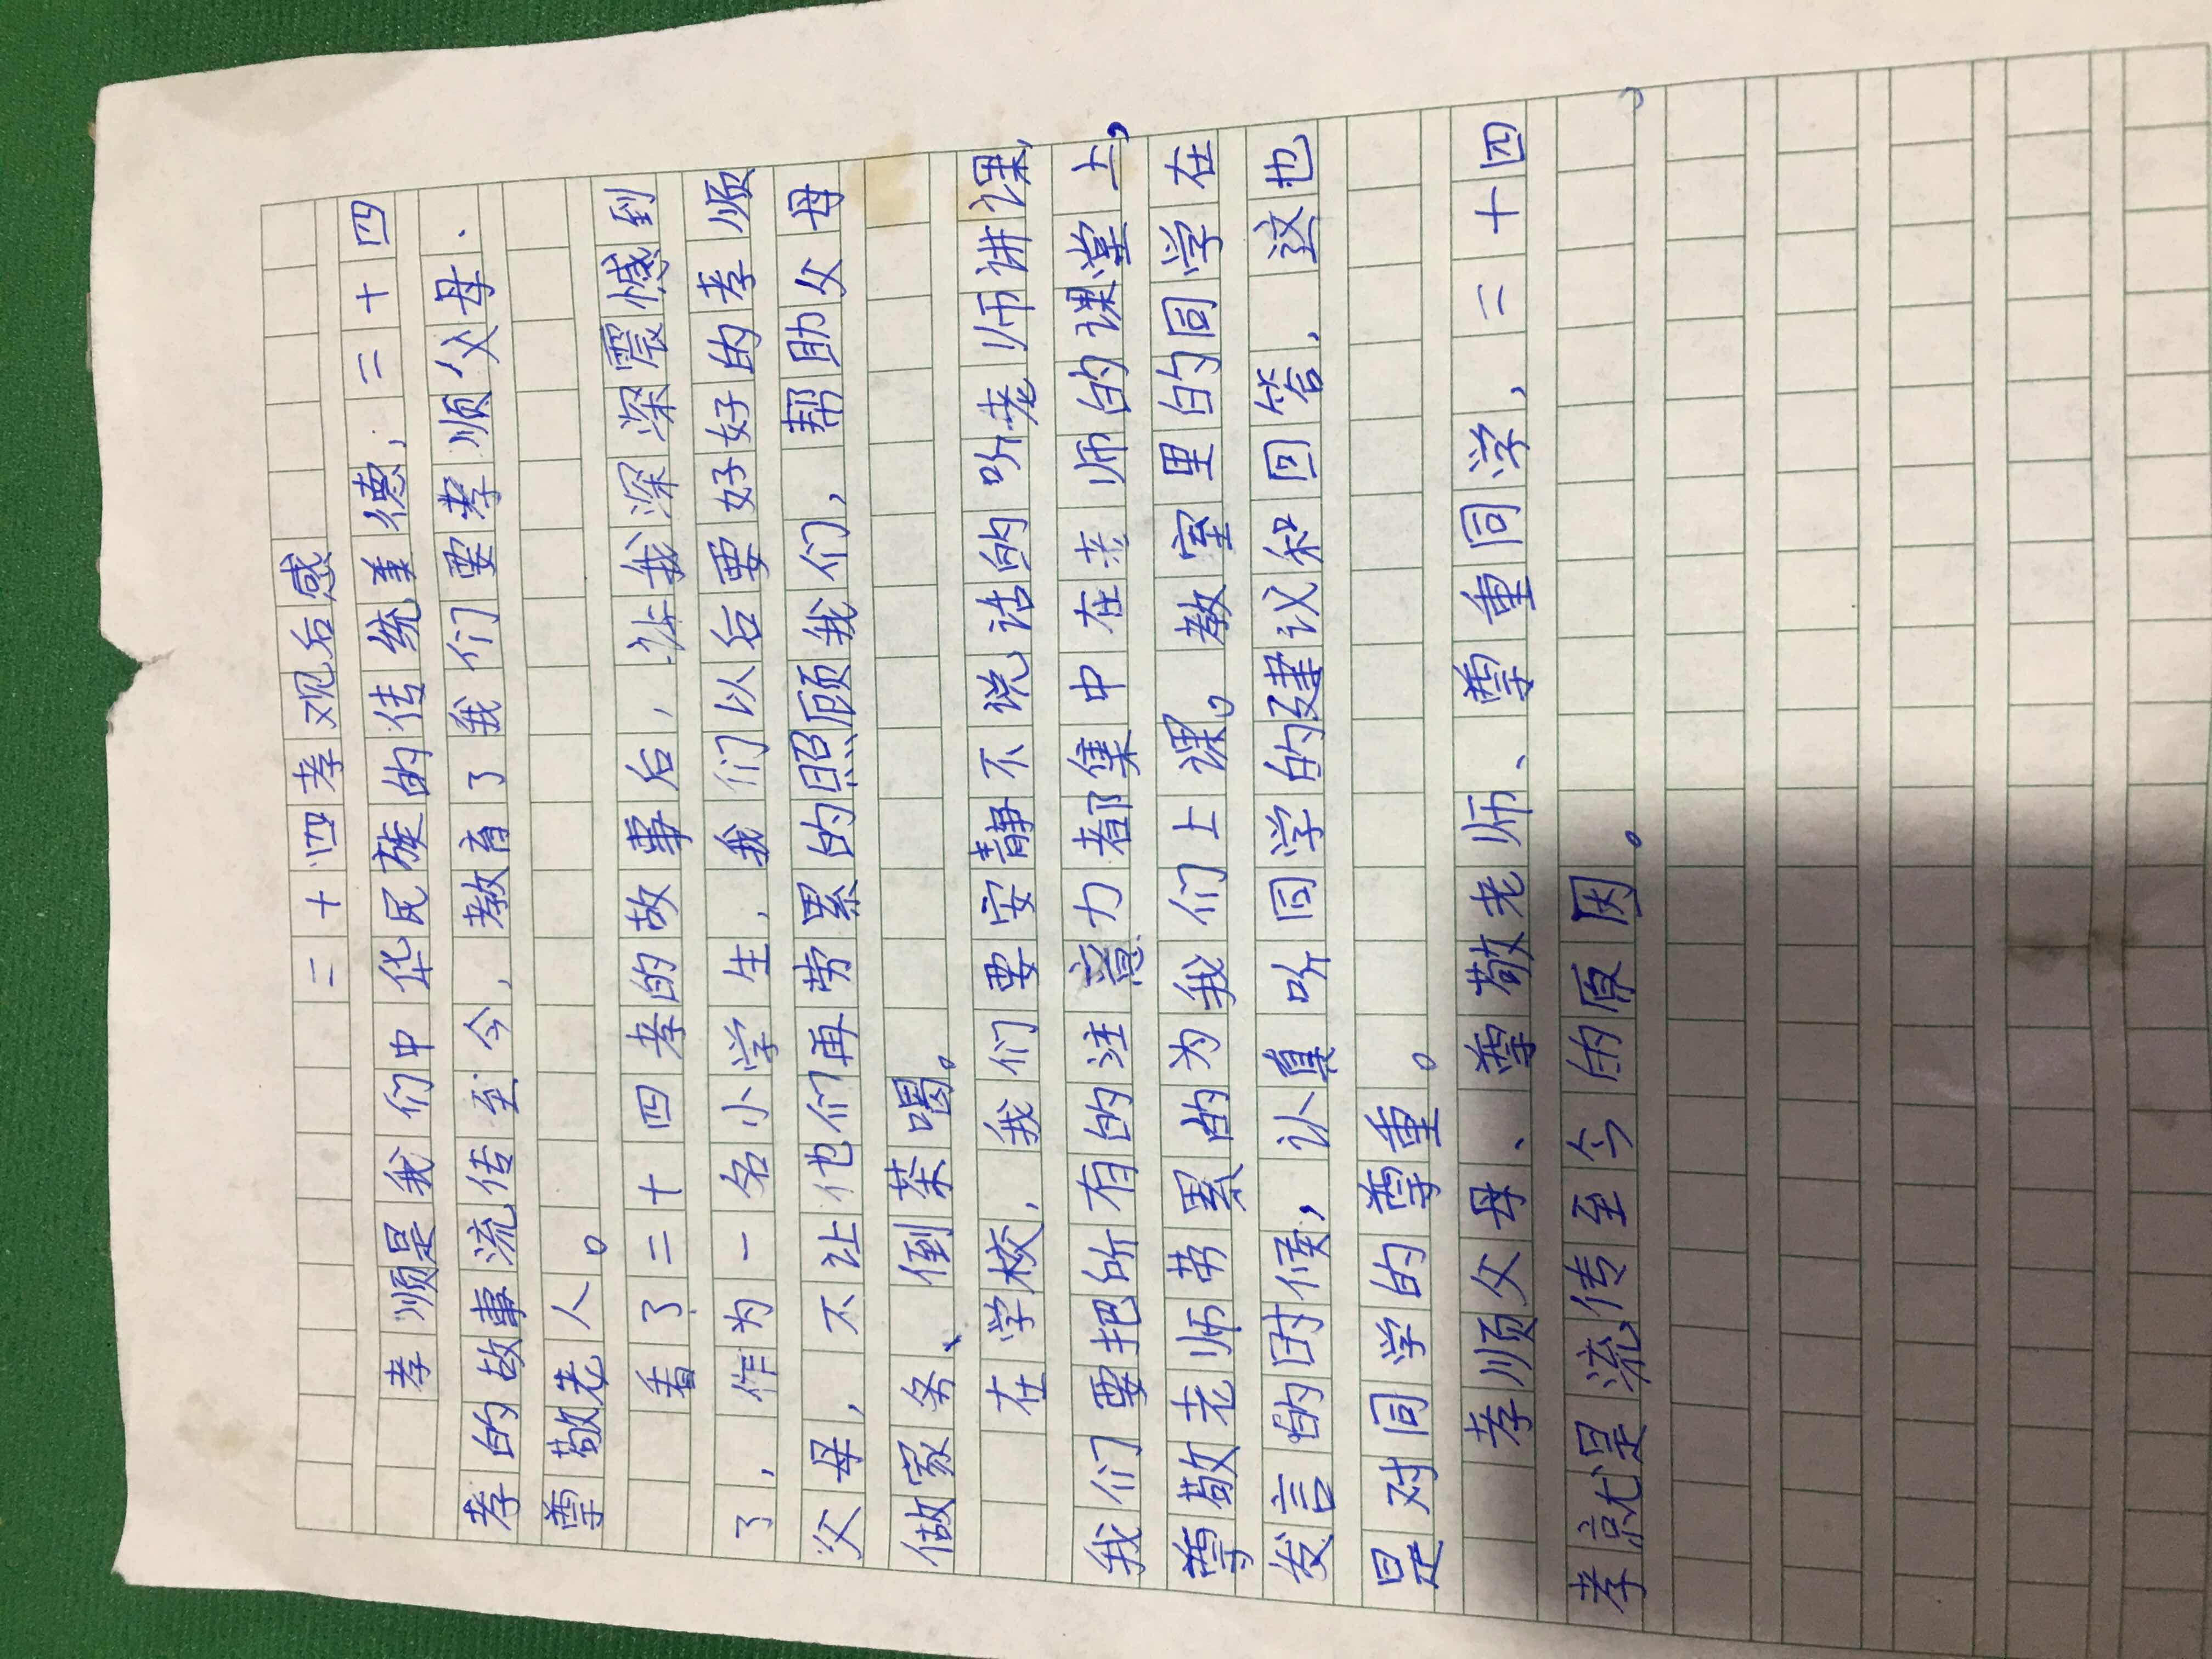 二十四孝观后感
孝顺是我们中华民族的传统美德，二十四
孝的故事流传至今，教育了我们要孝顺父母.
尊敬老人。
看了二十四孝的故事后，让我深深震憾到
了，作为一名小学生，我们以后要好好的孝顺
父母，不让他们再劳累的照顾我们，帮助父母
做家务、倒茶喝。
在学校，我们要安静不说话的听老师讲课，
我们要把所有的注意力都集中在老师的课堂上，
尊敬老师劳累的为我们上课。教室里的同学在
发言的时候，认真听同学的建议和回答，这也
是对同学的尊重。
孝顺父母、尊敬老师、尊重同学，二十四
孝就是流传至今的原因。